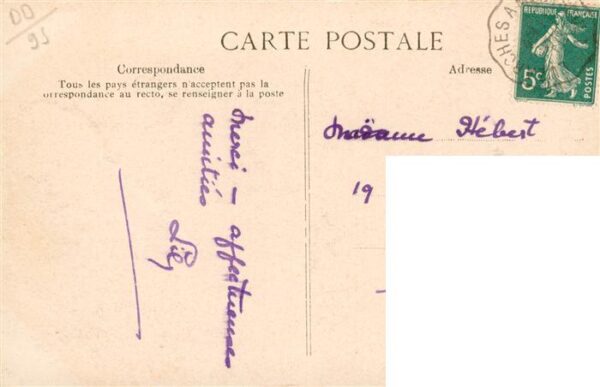 DD
95
CARTE POSTALE
Correspondance
Tous les pays étrangers n'acceptent pas la
orrespondance au recto, se renseigner à la poste
Adresse
CHES A
REPUBLIQUE FRANÇAISE
5c
POSTES
Madame Hébert
19
Merci - affectueuses
amitiés